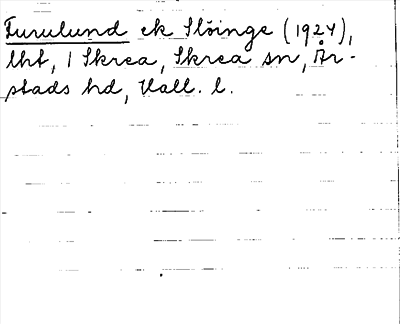 Furulund ek Slöinge (1924),
lht, 1 Skrea, Skrea sn, År-
stads hd, Hall. l.